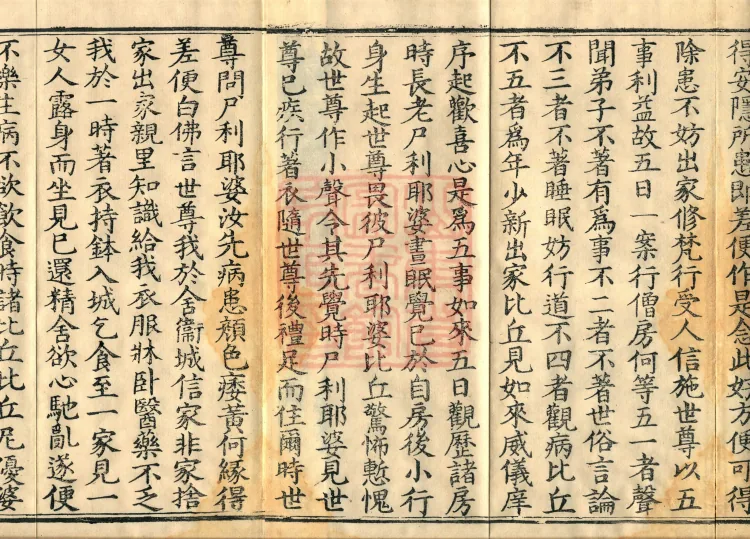 得安隱所患即差便作是念此好方便可得
除患不妨出家修梵行受人信施世尊以五
事利益故五日一案行僧房何等五一者聲
聞弟子不著有為事不二者不著世俗言論
不三者不著睡眠妨行道不四者觀病比丘
不五者為年少新出家比丘見如來威儀庠
序起歡喜心是為五事如來五日觀歷諸房
時長老尸利耶婆晝眠覺已於自房後小行
身生起世尊畏彼尸利耶婆比丘驚怖慙愧
故世尊作小聲令其先覺時尸利耶婆見世
尊已疾行著衣隨世尊後禮足而住爾時世
尊問尸利耶婆汝先病患顏色痿黃何緣得
差便白佛言世尊我於舍衞城信家非家捨
家出家親里知識給我衣服牀卧醫藥不乏
我於一時著衣持鉢入城乞食至一家見一
女人露身而坐見已還精舍欲心馳亂遂便
不樂生病不欲飲食時諸比丘比丘尼優婆